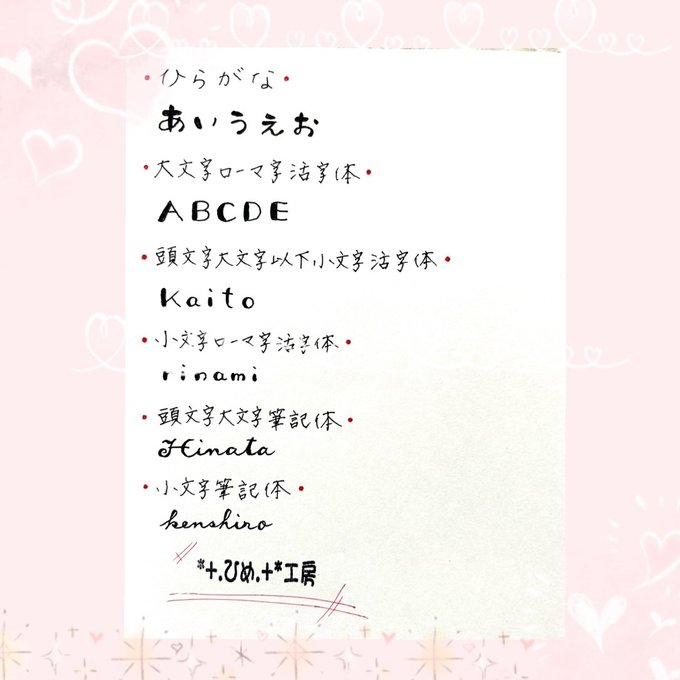 ・ひらがな・
あいうえお
・大文字ローマ字活字体・
ABCDE
・頭文字大文字以下小文字活字体・
Kaito
・小文字ローマ字活字体・
rinami
・頭文字大文字筆記体・
Hinata
・小文字筆記体・
kenshiro
*+.ひめ.+*工房